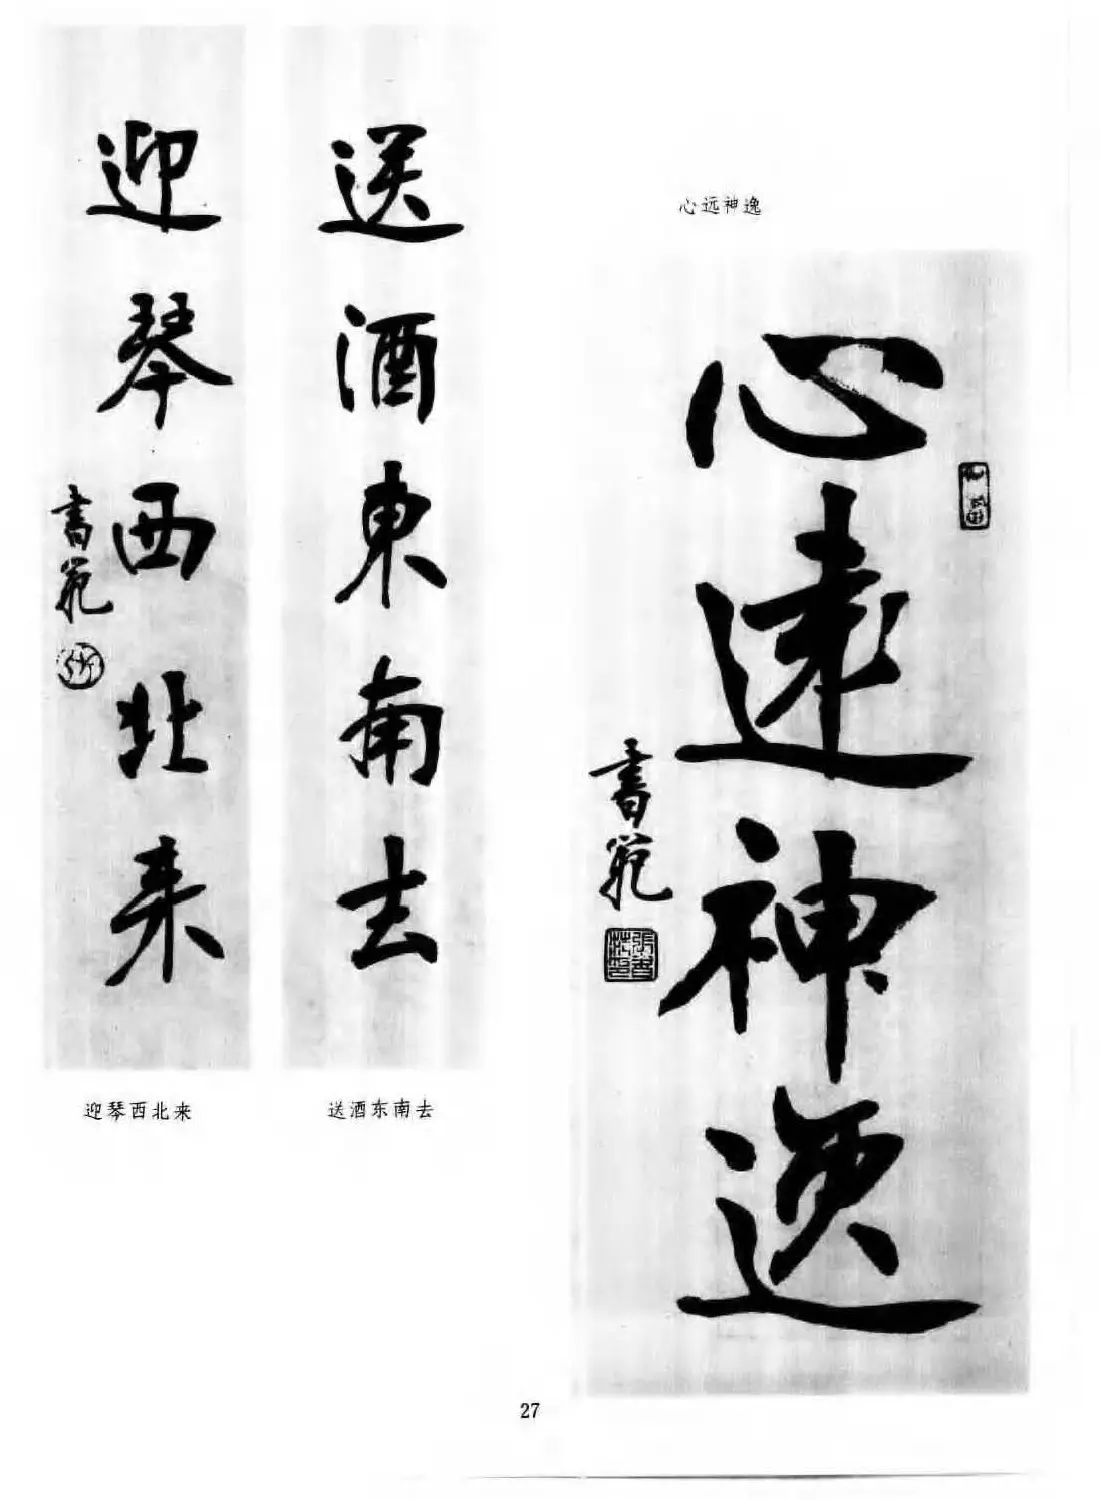 心远神逸
心遠神逸
書範
張書範印
送酒東南去
迎琴西北来
書範
迎琴西北来
送酒东南去
27